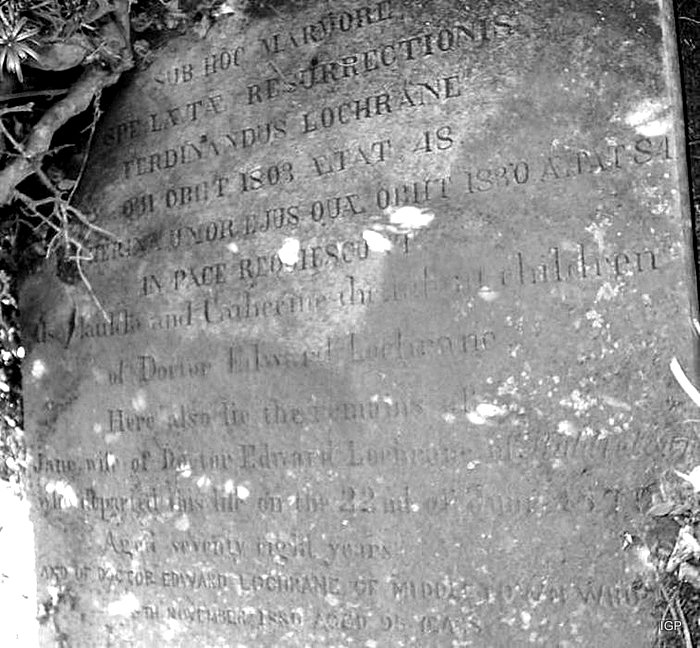 SUB HOC MARMORE
SPE LÆTÆ RESURRECTIONIS
FERDINANDUS LOCHRANE
QUI OBIIT 1803 ÆTAT 48
UXOR EJUS QUÆ OBIIT 1830 ÆTAT 84
IN PACE REQUIESCUNT
and Catherine children
of Doctor Edward Lochrane
Here also lie the remains of
Jane, wife of Doctor Edward Lochrane of
who departed this life on the 22nd of
Aged seventy eight years
AND OF DOCTOR EDWARD LOCHRANE OF MIDDLETOWN WHO
TH NOVEMBER 1880 AGED 95 YEARS
IGP